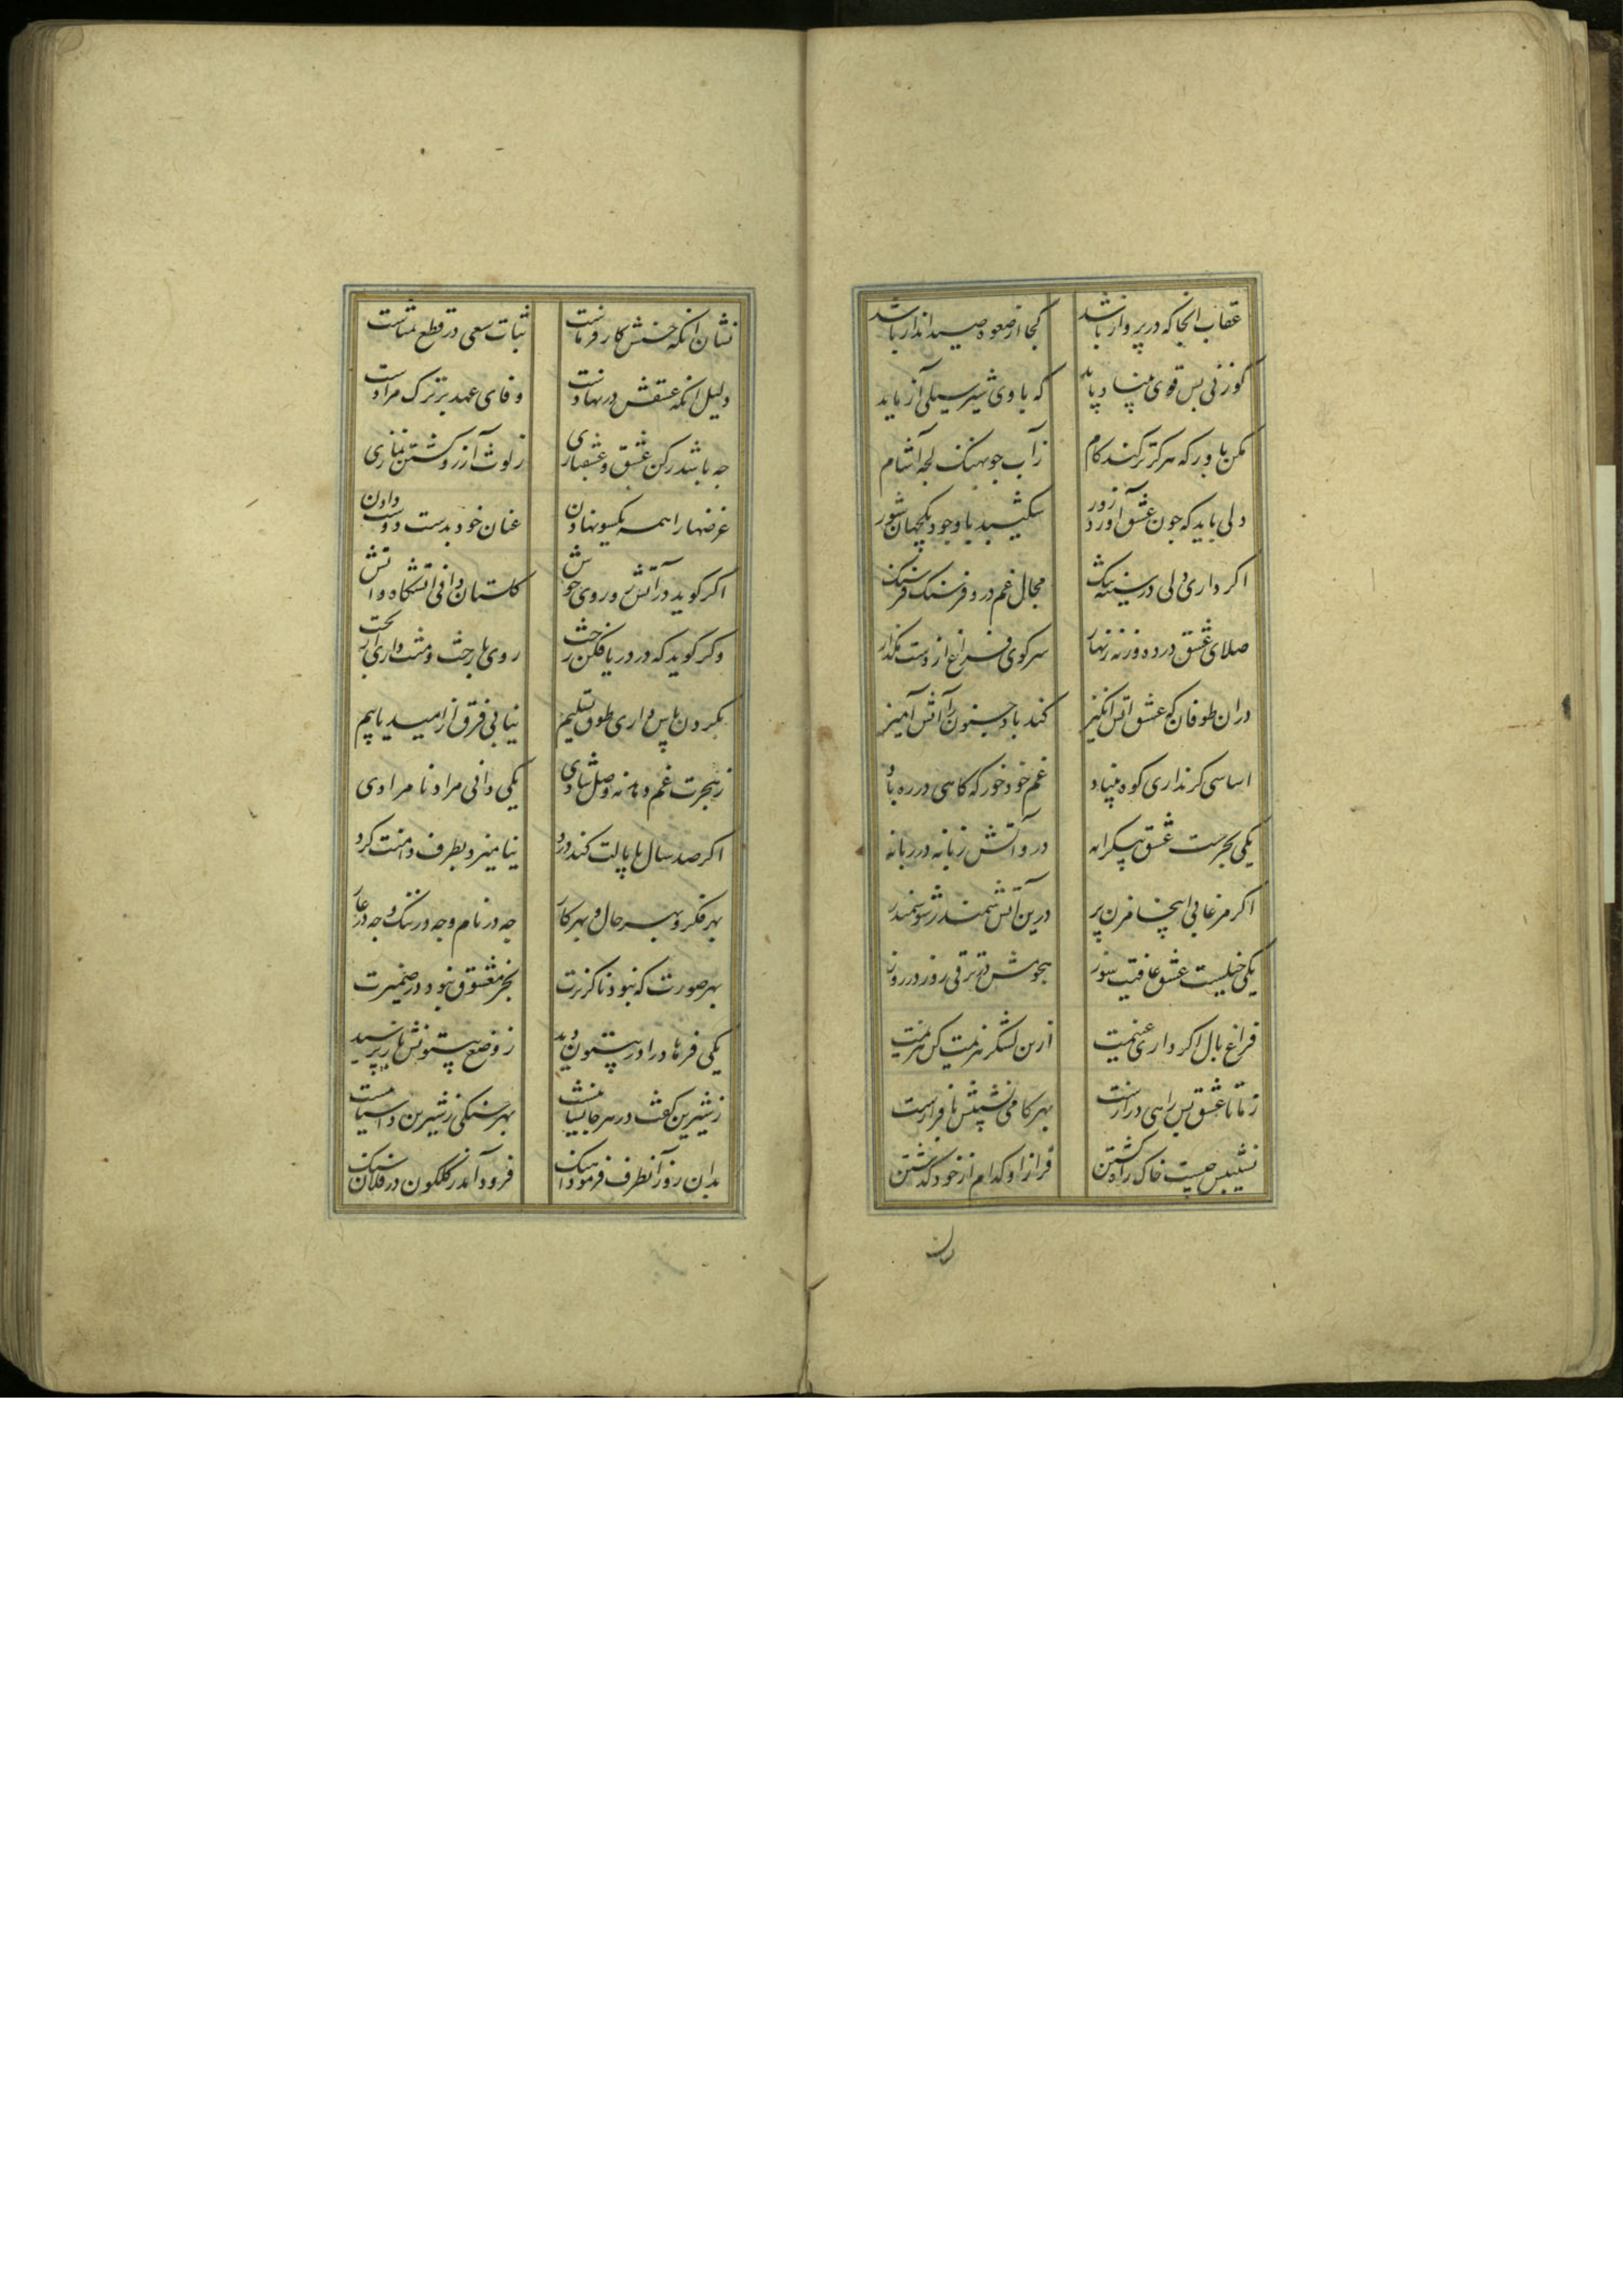 عقاب انجا که در پرواز باشد کجا از صعوه صید انداز باشد
کوزنی بس قوی بنیاد باید که با وی شیر سیلی آزماید
مکن باور که هرکز تر کند کام ز آب جو نهنک لجه آشام
دلی باید که جون عشق آورد زور شکیبد با وجود یکجهان شور
اکر داری دلی در سینه تنک مجال غم درو فرسنک فرسنک
صلای عشق درده ورنه زنهار سر کوی فراغ از دست مکذار
دران طوفان که عشق اتش انکیز کند باد جنون را آتش آمیز
اساسی کر نداری کوه بنیاد غم خود خور که کاهی در ره باد
یکی بحرست عشق بیکرانه درو آتش زبانه در زبانه
اکر مرغابی اینجا مزن پر درین آتش سمندر شو سمندر
یکی خیلیست عشق عافیت سوز هجومش در ترقی روز در روز
فراغ بال اکر داری غنیمت ازین لشکر هزیمت کن هزیمت
ز ما تا عشق بس راهی درازست بهر کامی نشیبی با فرازست
نشیبش چیست خاک راه کشتن فراز او کدام از خود کذشتن
نشان
نشان انکه عشقش کار فرماست ثبات سعی در قطع تمناست
دلیل انکه عشقش در نهادست وفای عهد بر ترک مرادست
جه باشد رکن عشق و عشقبازی ز لوث آرزو کشتن نمازی
غرضها را همه یکسو نهادن عنان خود بدست دوست دادن
اکر کوید در آتش رو روی خوش کلستان دانی اتشکاه و اتش
وکر کوید که در دریا فکن رخت روی با رخت و منت داری از بخت
بکردن پاس داری طوق تسلیم نیابی فرق از امید یا بیم
نه هجرت غم دهد نه وصل شادی یکی دانی مراد نا مرادی
اکر صد سال پا مالت کند درد نیامیزد بطرف دامنت کرد
بهر فکر و بهر حال و بهر کار چه در نام و جه در ننک و جه در عار
بهر صورت که نبود ناکزیرت بجز معشوق نبود در ضمیرت
یکی فرهاد را در بیستون دید ز وضع بیستونش باز پرسید
ز شیرین کفت در هر جا نشانیست بهر سنکی ز شیرین داستانیست
بدان روز آنطرف فرمود آهنک فرود آمد ز کلکون در فلان سنک